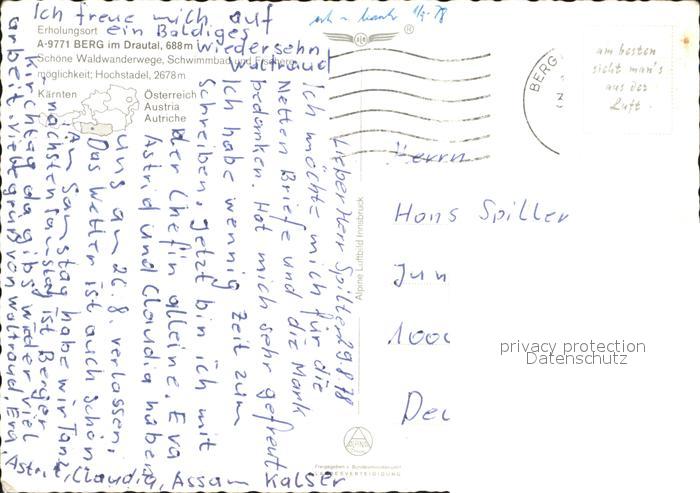 Ich freue mich auf
ein Baldiges
Wiedersehn
Waltraud
Erholungsort
A-9771 BERG im Drautal, 688m
Schöne Waldwanderwege, Schwimmbad und Fischerei-
möglichkeit; Hochstadel, 2678m
Kärnten
Österreich
Austria
Autriche
Lieber Herr Spiller 29.8.78
Ich möchte mich für die
Netten Briefe und die Mark
bedanken. Hat mich sehr gefreut
Ich habe wennig Zeit zum
Schreiben. Jetzt bin ich mit
der Chefin alleine. Eva
Astrid und Claudia haben
uns am 26.8. verlassen.
Das Wetter ist auch schön
Am Samstag habe wir Tanz
nächsten Samstag ist Berger
Kirchtag da gibs wieder viel
arbeit. Viele grüße von Waltraud, Eva
Astrid, Claudia, Assam Kalser
Alpine Luftbild Innsbruck
1/9 78
®
BERG
am besten
sieht man's
aus der
Luft.
Herrn
Hans Spiller
Jun
1000
Deu
privacy protection
Datenschutz
ALPINE
Freigegeben v. Bundesministerium f.
LANDESVERTEIDIGUNG